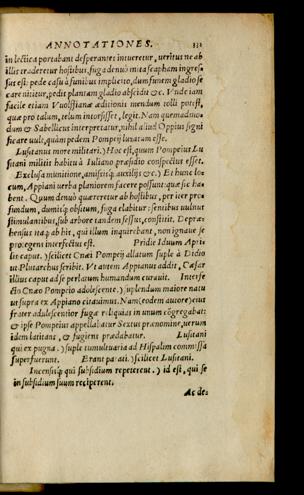 ANNOTATIONES. 331
in lectica portabant desperantes intueretur, ueritus ne ab
illis traderetur hostibus, fuga denuò inita scapham ingres
sus est: pede casu à funibus implicito, dum funem gladio se
care nititur, pedit plantam gladio abscidit &c. Vnde iam
facile etiam Vuolffianæ æditionis mendum tolli potest,
quæ pro talum, telum intorsisset, legit. Nam quemadmo
dum & Sabellicus interpretatur, nihil aliud Oppius signi
ficare uult, quàm pedem Pompeij luxatum esse.
Lusitanus more militari.) Hoc est, quum Pompeius Lu
sitani militis habitu à Iuliano præsidio conspectus esset.
Exclusa munitione, amissisq́; auxilijs &c.) Et hunc lo
cum, Appiani uerba planiorem facere possunt: quæ sic ha
bent. Quum denuò quæreretur ab hostibus, per iter pro
fundum, dumisq́; obsitum, fuga elabitur: sentibus uulnus
stimulantibus, sub arbore tandem fessus, constitit. Depræ
hensus itaq; ab his, qui illum inquirebant, non ignaue se
protegens interfectus est. Pridie Iduum Apri-
lis caput.) scilicet Cnæi Pompeij allatum suple à Didio
ut Plutarchus scribit. Vt autem Appianus addit, Cæsar
illius caput ad se perlatum humandum curauit. Interfe
cto Cnæo Pompeio adolescente.) suplendum maiore natu
ut supra ex Appiano citauimus. Nam (eodem autore) eius
frater adulescentior fuga reliquias in unum cōgregabat:
& ipse Pompeius appellabatur Sextus prænomine, uerum
idem latitans, & fugiens prædabatur. Lusitani
qui ex pugna.) suple tumultuaria ad Hispalim commissa
superfuerunt. Erant parati.) scilicet Lusitani.
Incensisq́; qui subsidium repeterent.) id est, qui se
in subsidium suum reciperent.
Ac de-